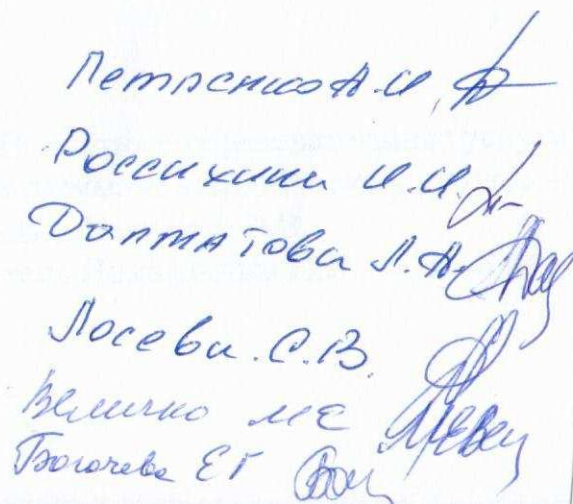 Петренко А.И.
Россихина И.И.
Долматова Л.А.
Лосева С.В.
Величко МЕ
Богочева ЕГ